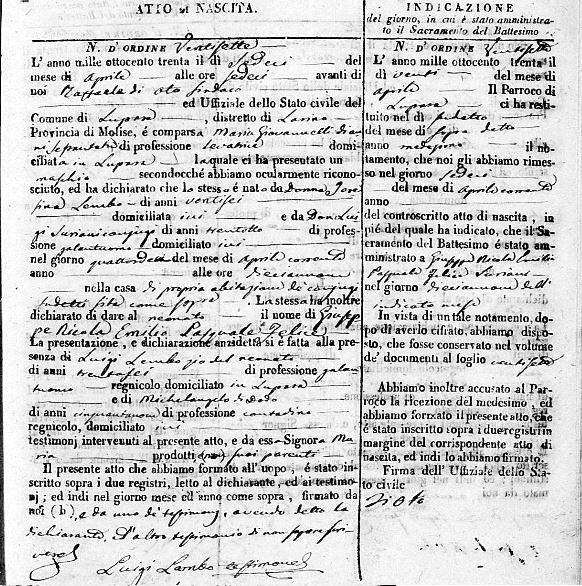 ATTO DI NASCITA.
N. D'ORDINE Ventisette
L'anno mille ottocento trenta il dì Sedeci del
mese di Aprile alle ore Sedeci avanti di
noi Raffaele di Oto Sindaco
ed Uffiziale dello Stato civile del
Comune di Lupara, distretto di Larino
Provincia di Molise, é comparsa Maria Giovannelli
di professione Levatrice domi-
ciliata in Lupara laquale ci ha presentato un
maschio secondocché abbiamo ocularmente ricono-
sciuto, ed ha dichiarato che lo stesso é nato da Donna Jose
fina Lembo di anni ventisei
domiciliata ivi e da Don Lui
gi Suriani conjugi di anni trentotto di profes-
sione galantuomo domiciliato ivi
nel giorno quattordeci del mese di Aprile corrente
anno alle ore dieciannove
nella casa di propria abitazione de' conjugi
sudetti sita come sopra. La stessa ha inoltre
dichiarato di dare al neonato il nome di Giusep
pe Nicola Emilio Pasquale Felice
La presentazione, e dichiarazione anzidetta si é fatta alla pre-
senza di Luigi Lembo zio del neonato
di anni trentasei di professione galan
tuomo regnicolo domiciliato in Lupara
e di Michelangelo
di anni cinquantuno di professione contadino
regnicolo, domiciliato ivi
testimonj intervenuti al presente atto, e da essa Signora Ma
ria prodotti (non) suoi parenti
Il presente atto che abbiamo formato all'uopo, é stato in-
scritto sopra i due registri, letto al dichiarante, ed ai testimo-
nj; ed indi nel giorno mese ed anno come sopra, firmato da
noi (b), e da uno di testimonj, avendo detto la
dichiarante. D'altro testimonio di non sapere scri
vere
Luigi Lembo testimone
INDICAZIONE
del giorno, in cui é stato amministra-
to il Sacramento del Battesimo
N. D'ORDINE Ventisette
L'anno mille ottocento trenta il
dì venti del mese di
Aprile Il Parroco di
Lupara ci ha resti-
tuito nel dì sudetto
del mese di sopra detto
anno medesimo il no-
tamento, che noi gli abbiamo rimes-
so nel giorno sedeci
del mese di Aprile corrente
anno
del controscritto atto di nascita, in
pié del quale ha indicato, che il Sa-
cramento del Battesimo é stato am-
ministrato a Giuseppe Nicola Emilio
Pasquale Felice Suriani
nel giorno dieciannove dell'
indicato mese
In vista di un tale notamento, do-
po di averlo cifrato, abbiamo dispo-
sto, che fosse conservato nel volume
de' documenti al foglio ventisette
Abbiamo inoltre accusato al Par-
roco la ricezione del medesimo, ed
abbiamo formato il presente atto, che
é stato inscritto sopra i due registri in
margine del corrispondente atto di
nascita, ed indi lo abbiamo firmato.
Firma dell'Uffiziale dello Sta-
to civile